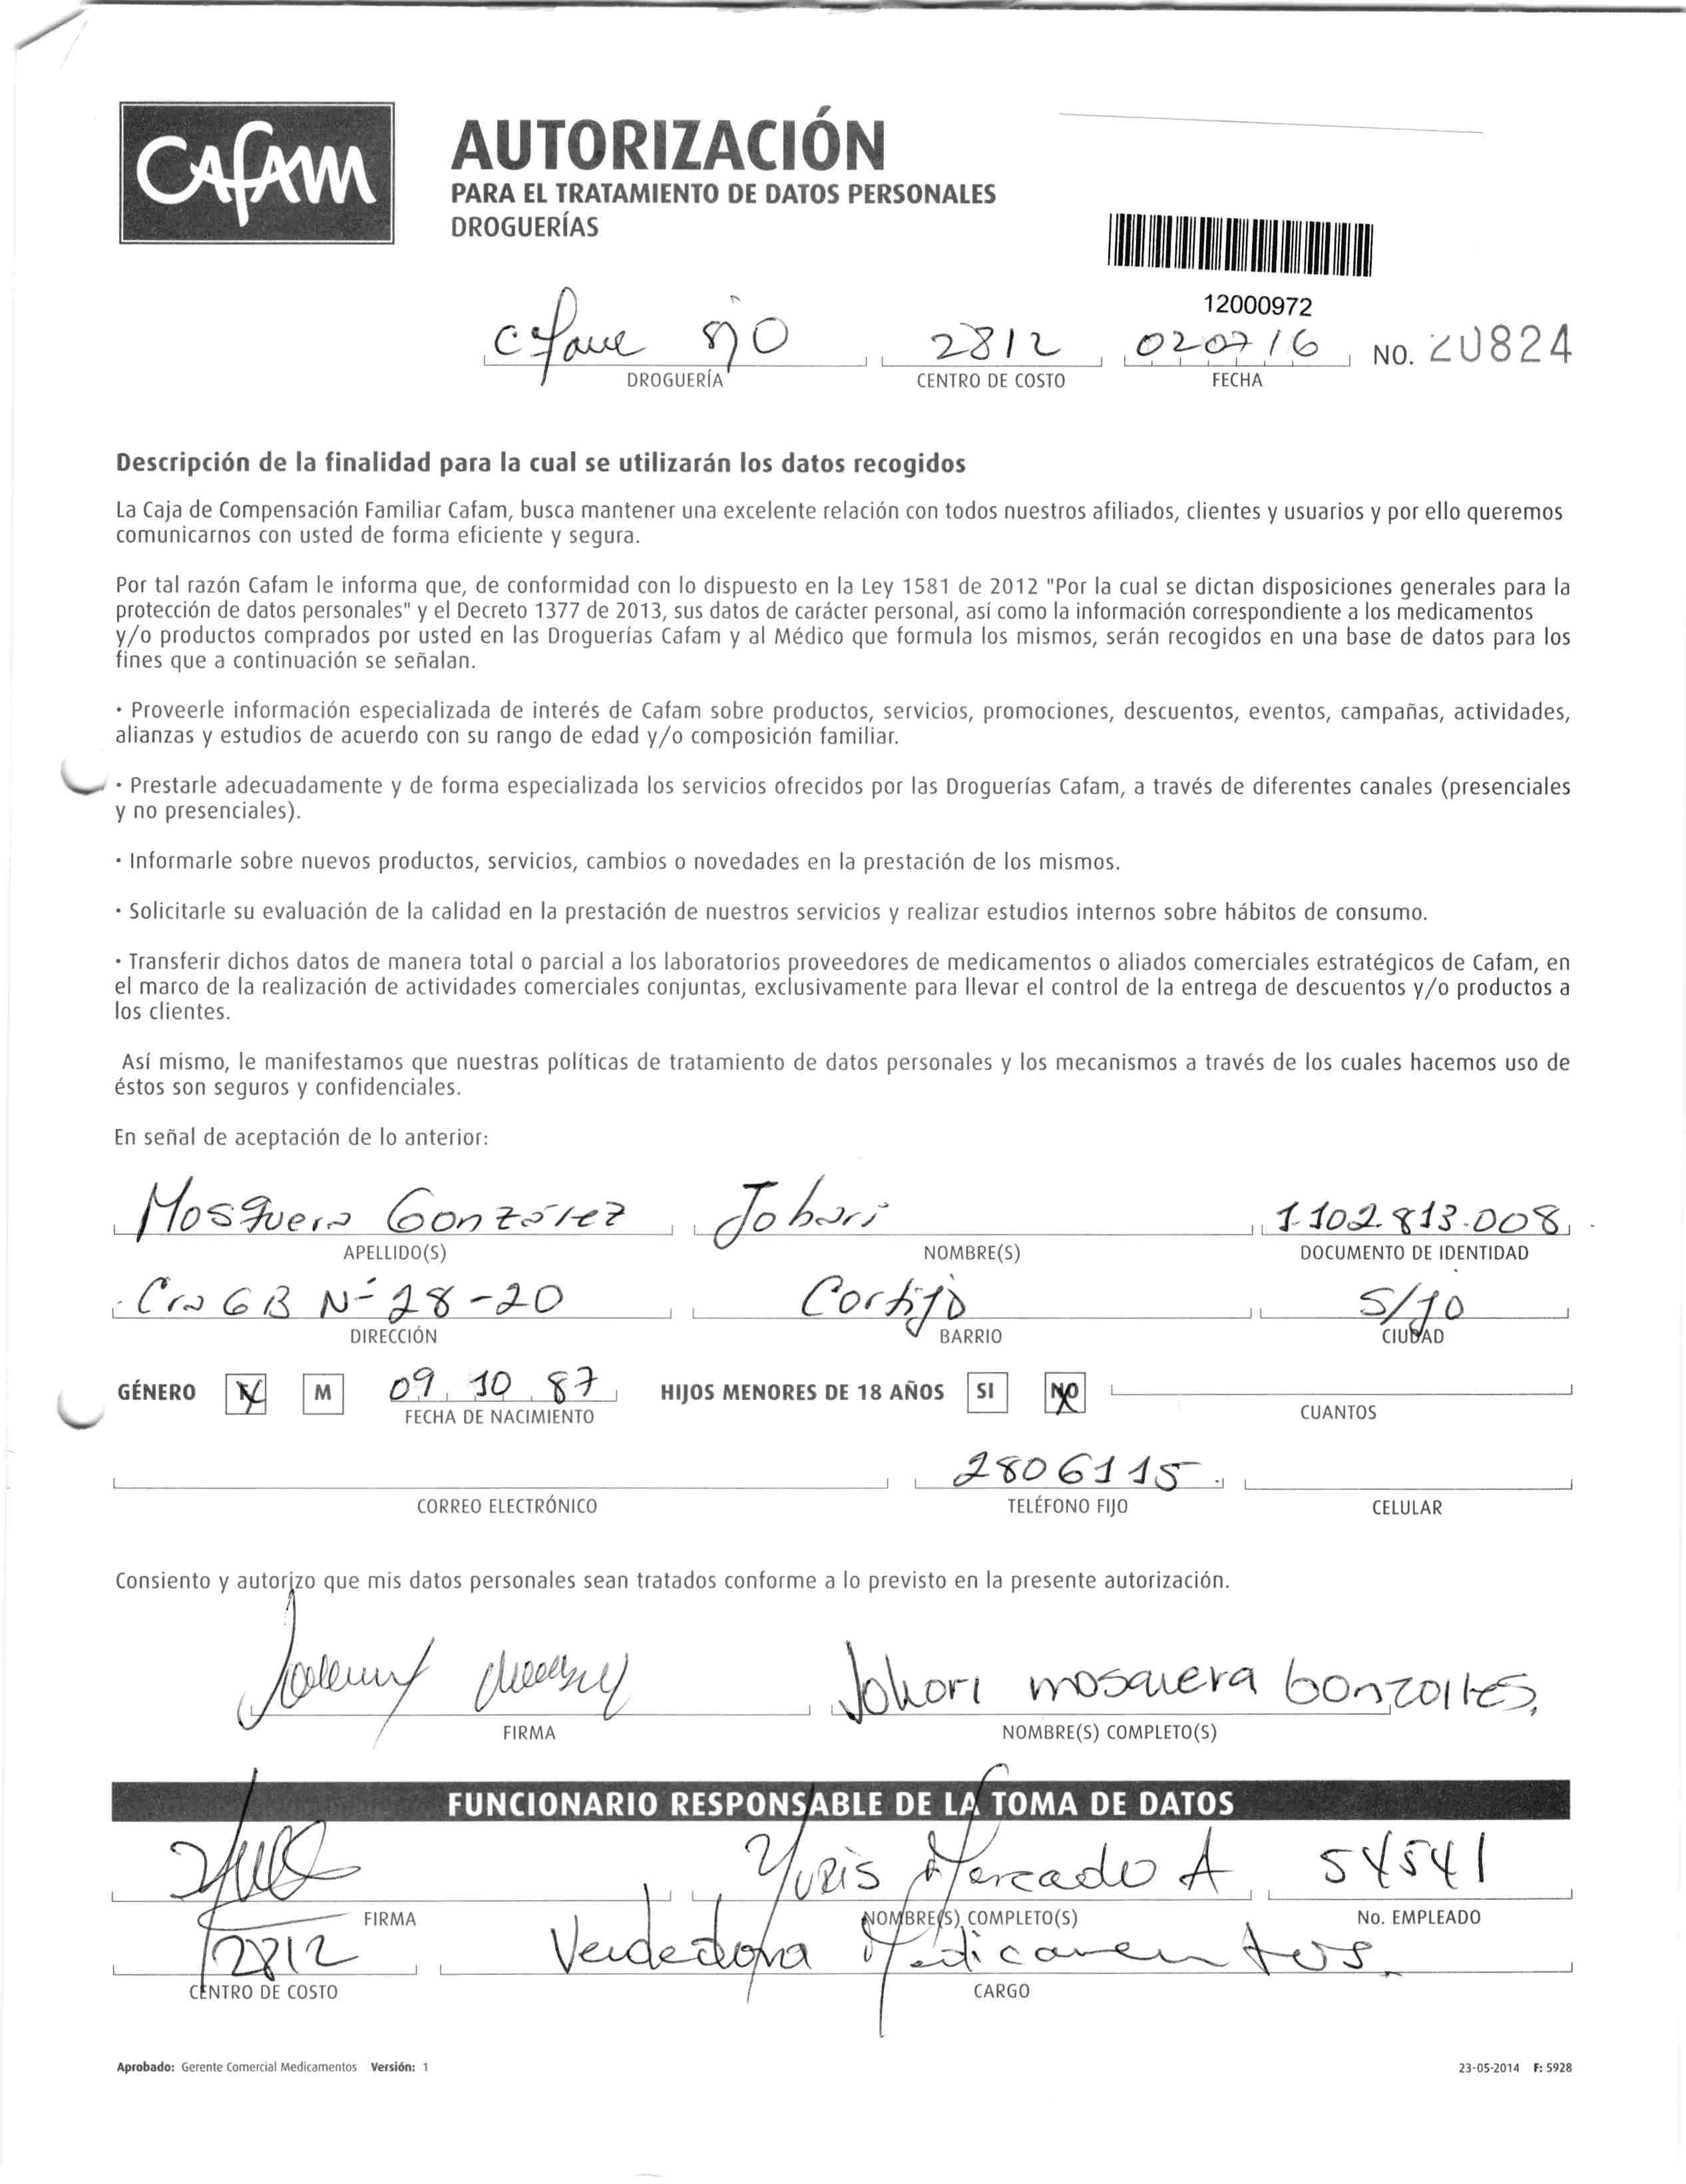 Cafam
AUTORIZACIÓN
PARA EL TRATAMIENTO DE DATOS PERSONALES
DROGUERÍAS
12000972
2812 020716 NO. 20824
DROGUERÍA CENTRO DE COSTO FECHA
Descripción de la finalidad para la cual se utilizarán los datos recogidos
La Caja de Compensación Familiar Cafam, busca mantener una excelente relación con todos nuestros afiliados, clientes y usuarios y por ello queremos
comunicarnos con usted de forma eficiente y segura.
Por tal razón Cafam le informa que, de conformidad con lo dispuesto en la Ley 1581 de 2012 "Por la cual se dictan disposiciones generales para la
protección de datos personales" y el Decreto 1377 de 2013, sus datos de carácter personal, así como la información correspondiente a los medicamentos
y/o productos comprados por usted en las Droguerías Cafam y al Médico que formula los mismos, serán recogidos en una base de datos para los
fines que a continuación se señalan.
· Proveerle información especializada de interés de Cafam sobre productos, servicios, promociones, descuentos, eventos, campañas, actividades,
alianzas y estudios de acuerdo con su rango de edad y/o composición familiar.
· Prestarle adecuadamente y de forma especializada los servicios ofrecidos por las Droguerías Cafam, a través de diferentes canales (presenciales
y no presenciales).
· Informarle sobre nuevos productos, servicios, cambios o novedades en la prestación de los mismos.
· Solicitarle su evaluación de la calidad en la prestación de nuestros servicios y realizar estudios internos sobre hábitos de consumo.
· Transferir dichos datos de manera total o parcial a los laboratorios proveedores de medicamentos o aliados comerciales estratégicos de Cafam, en
el marco de la realización de actividades comerciales conjuntas, exclusivamente para llevar el control de la entrega de descuentos y/o productos a
los clientes.
Así mismo, le manifestamos que nuestras políticas de tratamiento de datos personales y los mecanismos a través de los cuales hacemos uso de
éstos son seguros y confidenciales.
En señal de aceptación de lo anterior:
Mosquera González Johari 1.102.813.008
APELLIDO(S) NOMBRE(S) DOCUMENTO DE IDENTIDAD
Cra 6B Nº 28-20 Cortijo S/jo
DIRECCIÓN BARRIO CIUDAD
GÉNERO M 09 10 87 HIJOS MENORES DE 18 AÑOS SI NO
FECHA DE NACIMIENTO CUANTOS
2806115
CORREO ELECTRÓNICO TELÉFONO FIJO CELULAR
Consiento y autorizo que mis datos personales sean tratados conforme a lo previsto en la presente autorización.
Johori mosquera Gonzales
FIRMA NOMBRE(S) COMPLETO(S)
FUNCIONARIO RESPONSABLE DE LA TOMA DE DATOS
Yuris Mercado A 54541
FIRMA NOMBRE(S) COMPLETO(S) No. EMPLEADO
2812 Vendedora Medicamentos
CENTRO DE COSTO CARGO
Aprobado: Gerente Comercial Medicamentos Versión: 1 23-05-2014 F: 5928